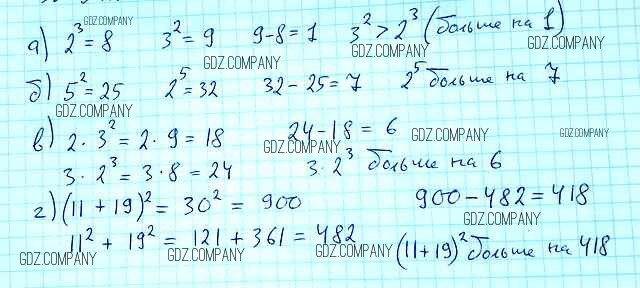 а) 2³ = 8 3² = 9 9-8 = 1 3² > 2³ (больше на 1)
GDZ.COMPANY GDZ.COMPANY GDZ.COMPANY GDZ.COMPANY
б) 5² = 25 2⁵ = 32 32-25 = 7 2⁵ больше на 7
GDZ.COMPANY
в) 2·3² = 2·9 = 18 24-18 = 6
GDZ.COMPANY GDZ.COMPANY GDZ.COMPANY
3·2³ = 3·8 = 24 3·2³ больше на 6
г) (11+19)² = 30² = 900 900-482 = 418
GDZ.COMPANY
11² + 19² = 121 + 361 = 482 (11+19)² больше на 418
GDZ.COMPANY GDZ.COMPANY GDZ.COMPANY